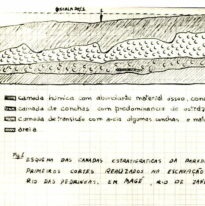 camada húmica com abundante material osseo, com
camada de conchas com predominancia de ostrea
camada de transição com areia algumas conchas e mate
areia
ESQUEMA DAS CAMADAS ESTRATIGRAFICAS DA PARED
PRIMEIROS CORTES REALIZADOS NA ESCAVAÇÃO
RIO DAS PEDRINHAS, EM MAGÉ, RIO DE JAN